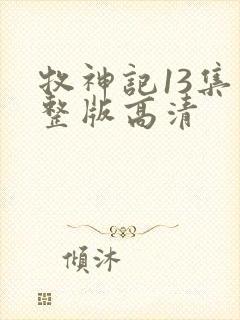 牧神記13集
整版高清
傾沐